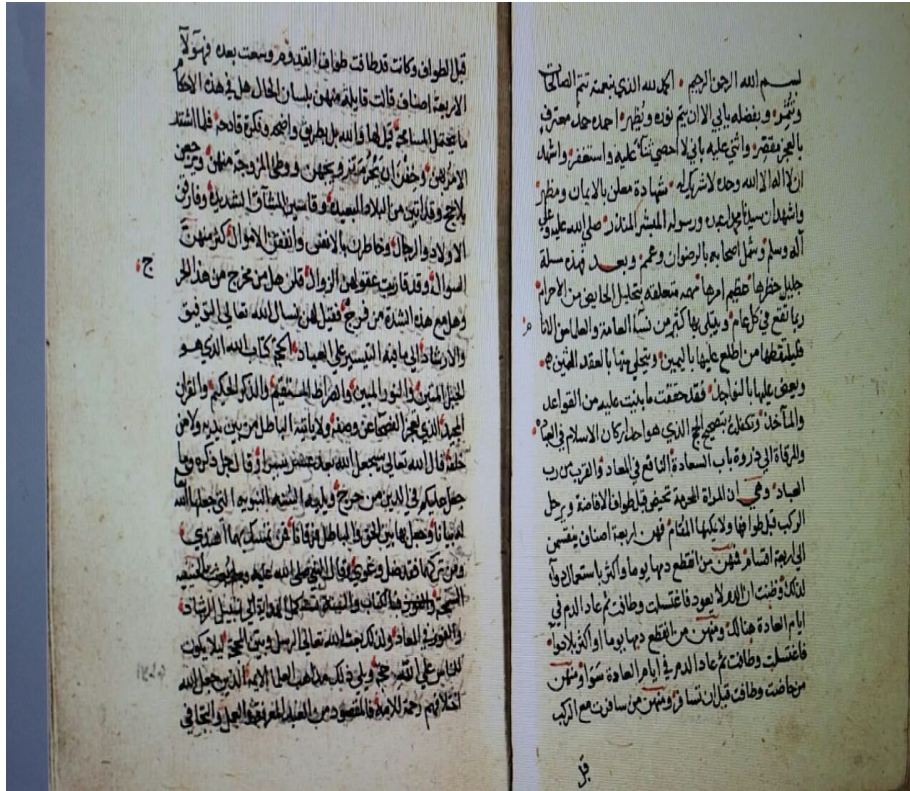 بسم الله الرحمن الرحيم الحمد لله الذي بنعمته تتم الصالحات
وتثمر وبفضله يابي الا ان يتم نوره ويظهر احمده حمد معترف
بالعجز مقصر واثني عليه باني لا احصي ثناء عليه واستغفر واشهد
ان لا اله الا الله وحده لا شريك له شهادة معلن بالايمان ومظهر
واشهد ان سيدنا محمدا عبده ورسوله المبشر المنذر صلى الله عليه وعلى
آله وسلم وشمل اصحابه بالرضوان وعمم وبعد فهذه مسلة
جليل خطرها عظيم امرها مهمه متعلقه بتحليل الحايض من الاحرام
ربما تقع في كل عام ويبتلى بها كثير من نسآ العامة والعلما من الانام
فليلتقطها من اطلع عليها باليمين ويتحلي منها بالعقد الثمين
ويعض عليها بالنواجذ فقد حققت ما بنيت عليه من القواعد
والمأخذ وتكفلت بتصحيح الحج الذي هو احد اركان الاسلام في العباد
والمرقاة الي ذروة باب السعادة النافع في المعاد والقرب من رب
العباد وهي ان المراة المحرمه تحيض قبل طواف الافاضة ويرحل
الركب قبل طوافها ولا يمكنها المقام فهن اربعة اصناف ينقسمن
الى اربعة اقسام فمنهن من انقطع دمها يوما واكثر باستعمال دوآء
لذلك وظنت ان الدم لا يعود فاغتسلت وطافت ثم عاد الدم في
ايام العادة هنالك ومنهن من انقطع دمها يوما او اكثر بلا دوآء
فاغتسلت وطافت ثم عاد الدم في ايام العادة سوآ ومنهن
من حاضت وطافت قبل ان تسافر ومنهن من سافرت مع الركب
قبل
قبل الطواف وكانت قد طافت طواف القدوم وسعت بعده فهولآ
الاربعة اصناف قالت قايلة منهن بلسان الحال هل في هذه الاحكام
ما يحتمل المسامحة قيل لها والله بل بطريق واضحه وفكرة قادحه فلما اشتد
الامر بهن وخفن ان تحرم تزويجهن ووطئ المزوجة منهن ويرجعن
بلا حج وقد اتين من البلاد البعيده وقاسين المشاق الشديده وفارقن
الاولاد والرجال وخاطرن بالانفس وانفقن الاموال كثر منهن
السوال وقد قاربت عقولهن الزوال قلن هل من مخرج من هذا الحرج
وهل مع هذه الشدة من فرج فقيل لهن نسال الله تعالى التوفيق
والارشاد الي ما فيه التيسير على العباد الحجة كتاب الله الذي هو
الحبل المتين والنور المبين والصراط المستقيم والذكر الحكيم والقران
المجيد الذي اعجز الفصحا عن وصفه ولا ياتيه الباطل من بين يديه ولا من
خلفه قال الله تعالى سيجعل الله بعد عسر يسرا وقال جل ذكره وما
جعل عليكم في الدين من حرج ويليه السنة النبويه التي جعلها الله
لنا بيانا وجعل بها بين الحق والباطل فرقانا فمن تمسك بهما اهتدى
ومن تركهما فقد ضل وغوى وقال النبي صلى الله عليه وسلم بعثت بالحنيفية
السمحة فالكتاب والسنة الهداية الي سبيل الرشاد
والفوز في المعاد ولذلك بعث الله تعالى الرسل وبين الحجج ليلا يكون
للناس علي الله حجة ويلي ذلك مذاهب العلما الايمه الذين جعل الله
اختلافهم رحمة للامة فالمقصود من العبيد المعرفة والعمل والتجافي
ج